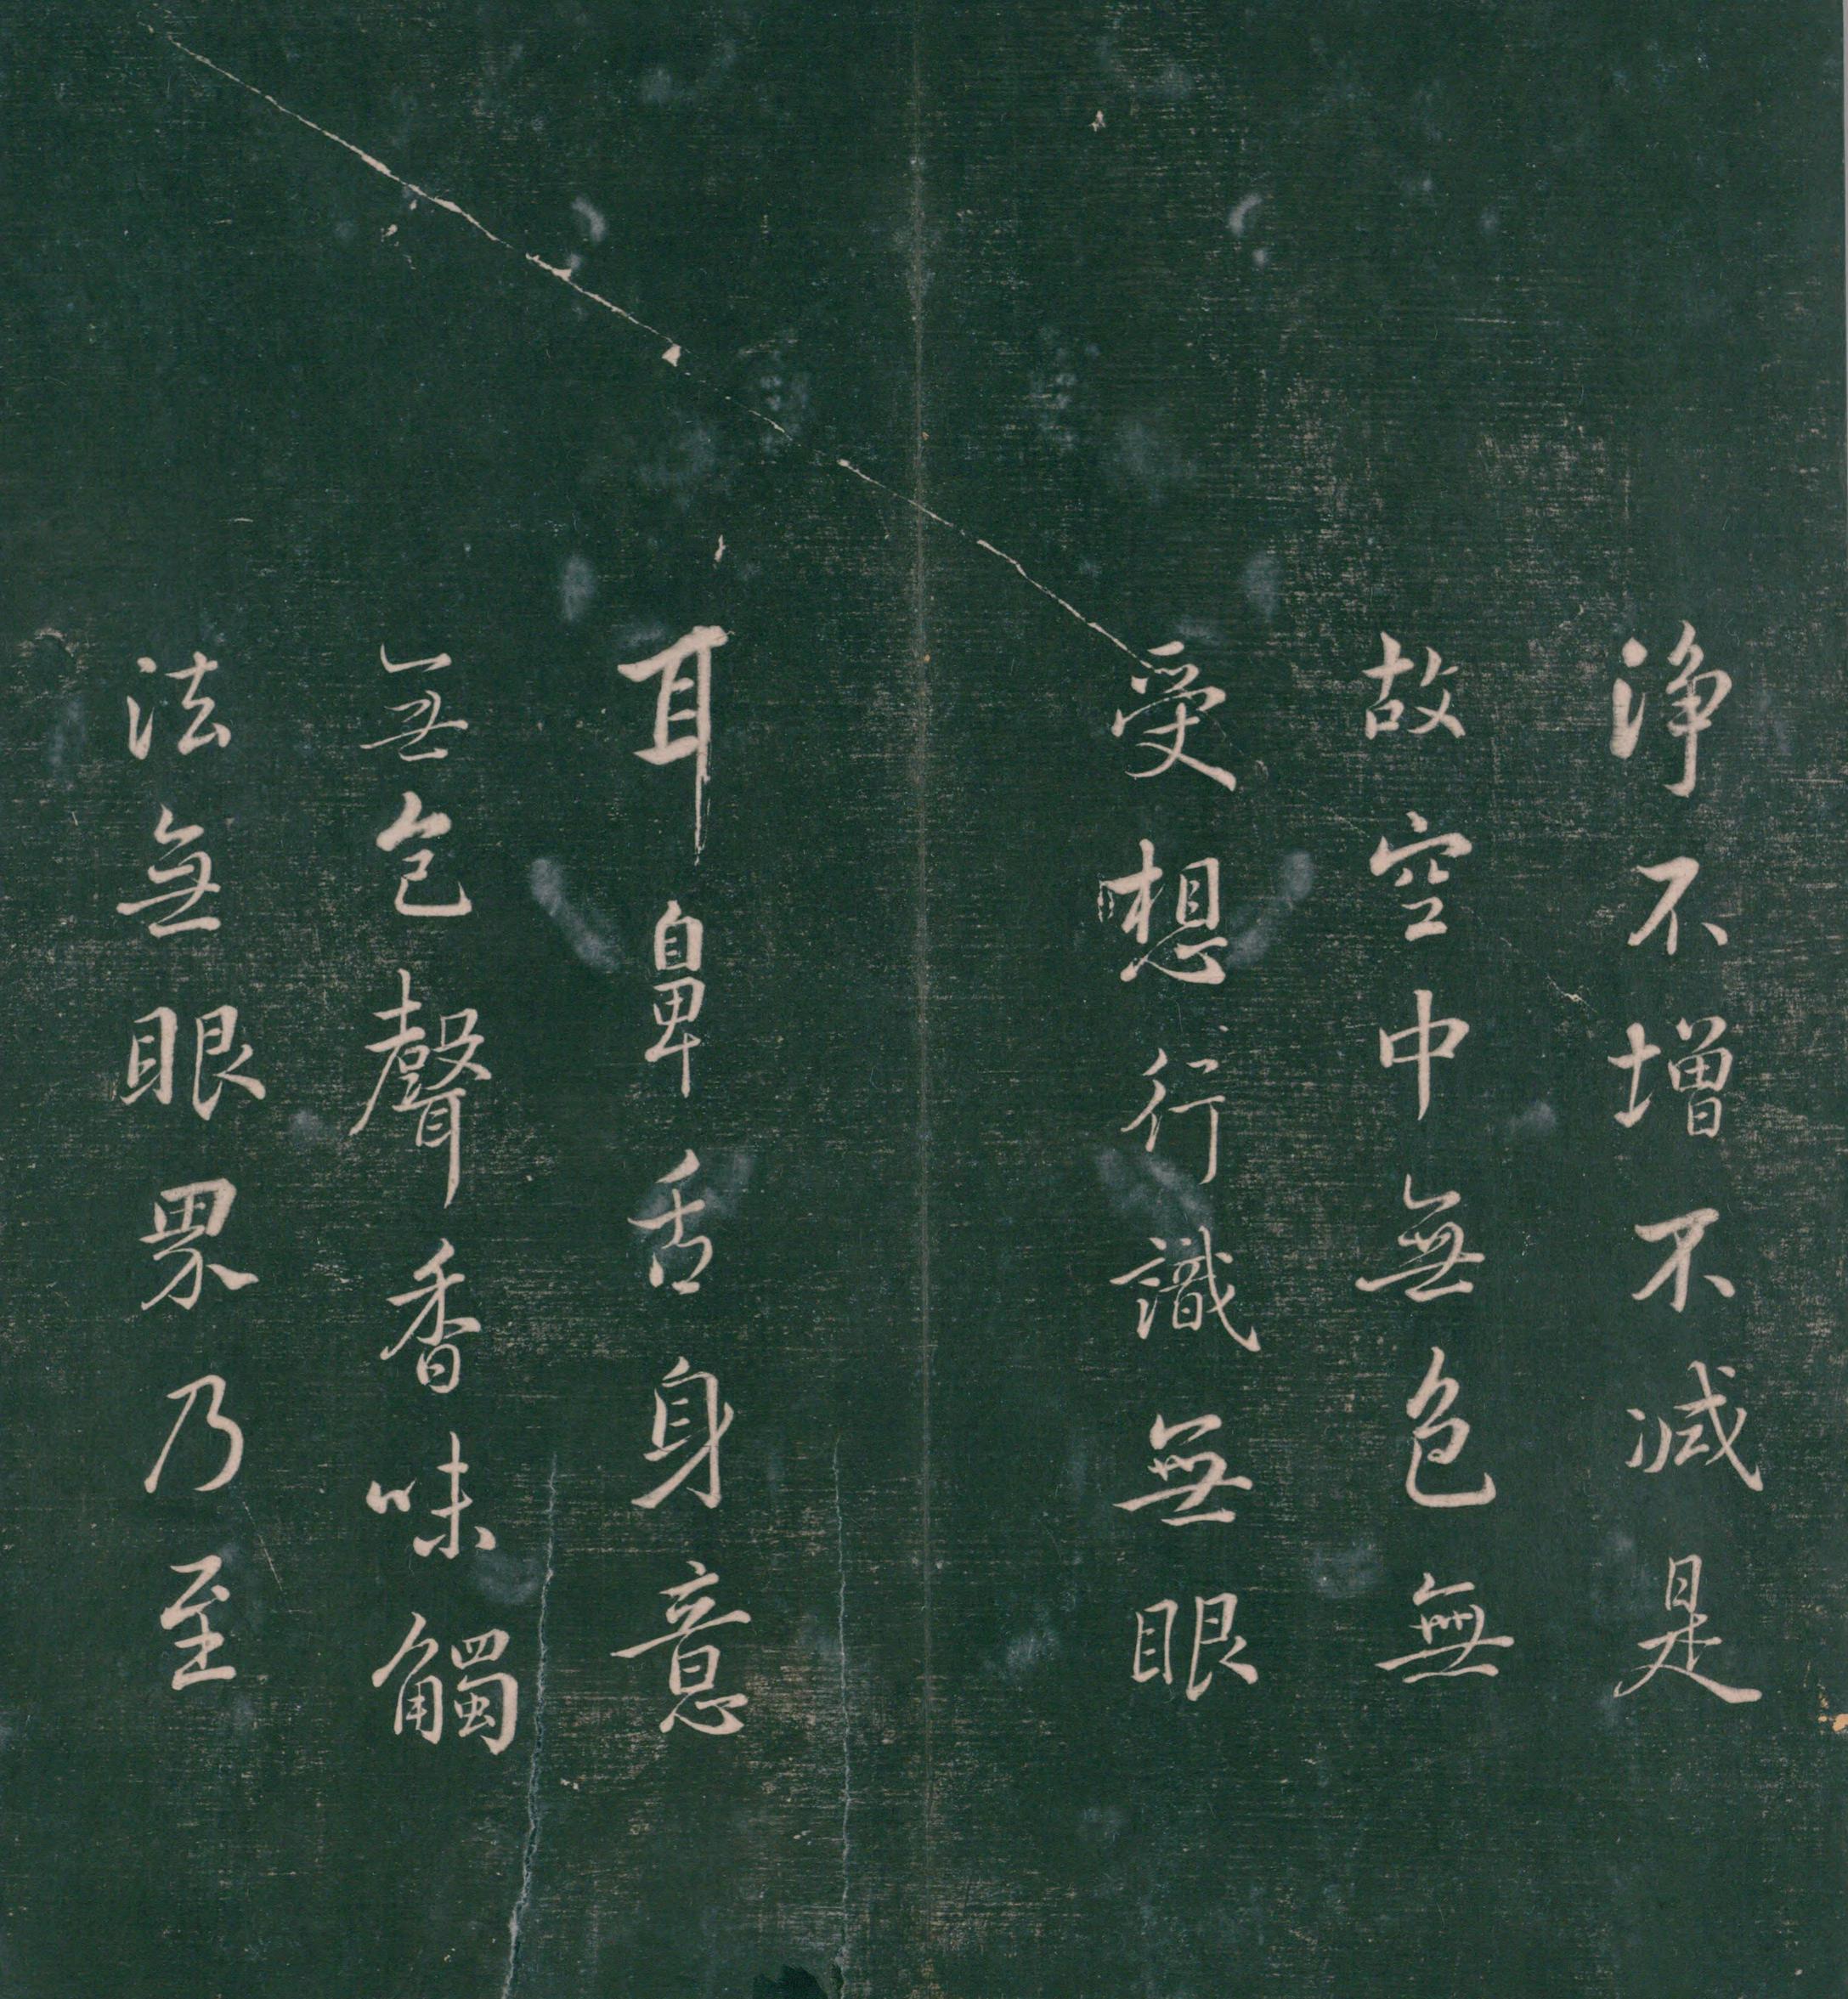 淨不增不減是
故空中無色無
受想行識無眼
耳鼻舌身意
無色聲香味觸
法無眼界乃至